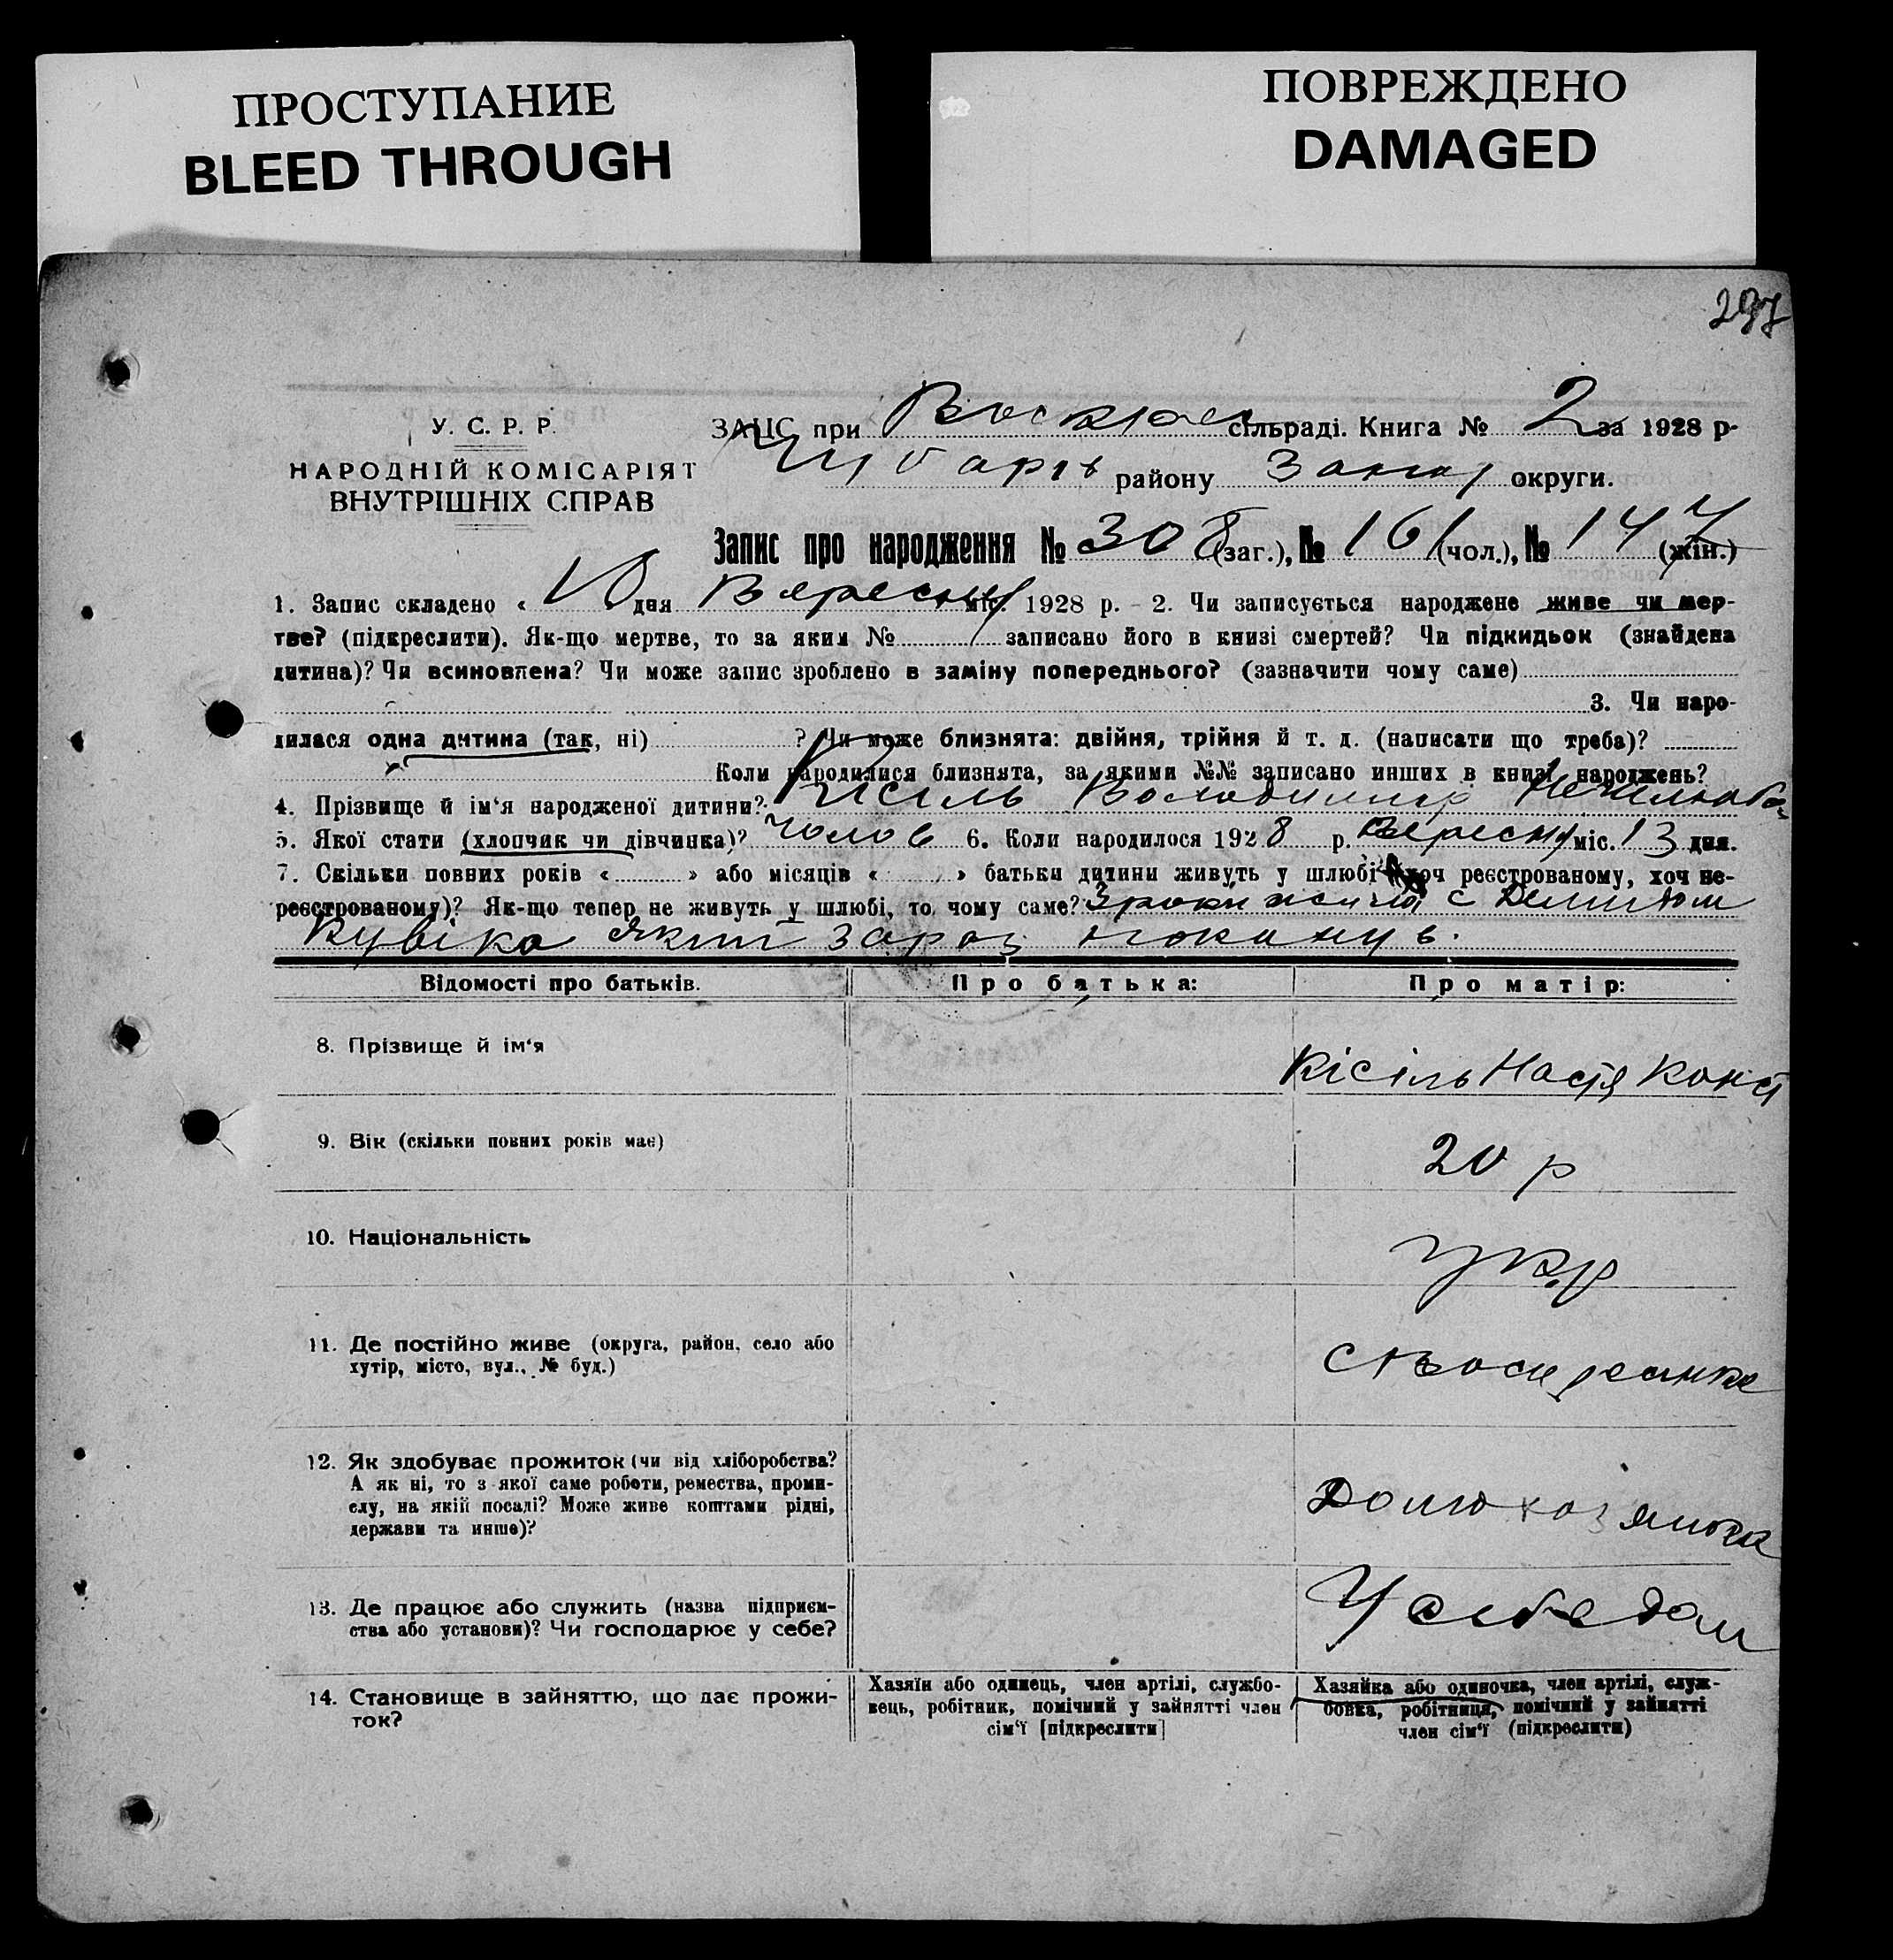 ПРОСТУПАНИЕ
BLEED THROUGH
ПОВРЕЖДЕНО
DAMAGED
297
У. С. Р. Р.
НАРОДНІЙ КОМІСАРІЯТ
ВНУТРІШНІХ СПРАВ
ЗАЦС при Воскрес сільраді. Книга № 2 за 1928 р.
Чубарів району Запор округи.
Запис про народження № 308 (заг.), № 161 (чол.), № 147 (жін.)
1. Запис складено « дня Вересня міс. 1928 р. - 2. Чи записується народжене живе чи мер-
тве? (підкреслити). Як-що мертве, то за яким № записано його в книзі смертей? Чи підкидьок (знайдена
дитина)? Чи всиновлена? Чи може запис зроблено в заміну попереднього? (зазначити чому саме)
3. Чи наро-
дилася одна дитина (так, ні) ? Чи може близнята: двійня, трійня й т. д. (написати що треба)?
Коли народилися близнята, за якими №№ записано инших в книзі народжень?
4. Прізвище й ім'я народженої дитини? Кісіль Володимир
5. Якої стати (хлопчик чи дівчинка)? Чолов 6. Коли народилося 1928 р. Вересня міс. 13 дня.
7. Скільки повних років « » або місяців « » батьки дитини живуть у шлюбі (хоч реєстрованому, хоч не-
реєстрованому)? Як-що тепер не живуть у шлюбі, то чому саме? 3 роки жила с Демидом
Кувіка який зараз покинув.
Відомості про батьків.
Про батька:
Про матір:
8. Прізвище й ім'я
Кісіль Настя Конст
9. Вік (скільки повних років має)
20 р
10. Національність
Укр
11. Де постійно живе (округа, район, село або
хутір, місто, вул., № буд.)
12. Як здобуває прожиток (чи від хліборобства?
А як ні, то з якої саме роботи, ремества, проми-
слу, на якій посаді? Може живе коштами рідні,
держави та инше)?
Домохозяйка
13. Де працює або служить (назва підприєм-
ства або установи)? Чи господарює у себе?
У себе дом
14. Становище в зайняттю, що дає прожи-
ток?
Хазяїн або одинець, член артілі, службо-
вець, робітник, помічний у зайнятті член
сім'ї [підкреслити]
Хазяйка або одиночка, член артілі, служ-
бовка, робітниця, помічний у зайнятті
член сім'ї (підкреслити)